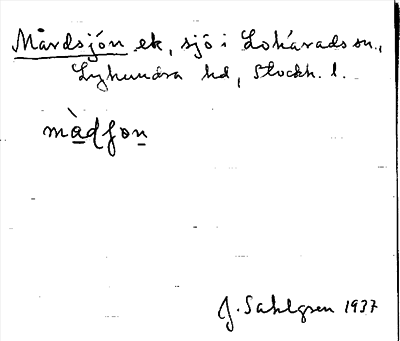 Mårdsjön ek, sjö i Lohärads sn.,
Lyhundra hd, Stockh. l.
màdfon
J. Sahlgren 1937